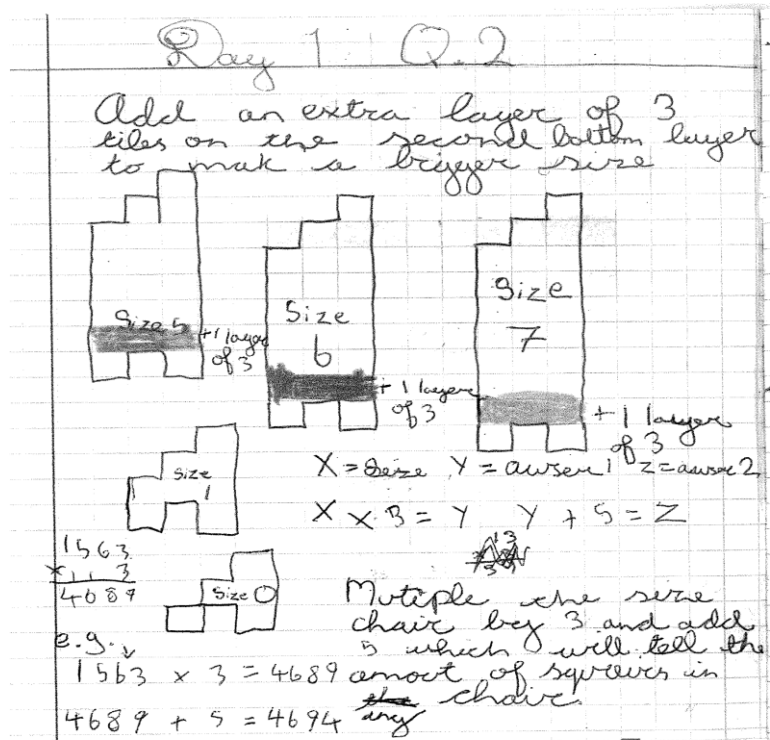 Day 1 Q.2
Add an extra layer of 3
tiles on the second bottom layer
to mak a bigger size
Size 5
+1 layer
of 3
Size
6
+1 layer
of 3
Size
7
+1 layer
of 3
Size
1
X = Size Y = awser 1 Z = awser 2
X x 3 = Y Y + 5 = Z
1563
x 3
4689
Size 0
Mutiple the size
chair by 3 and add
5 which will tell the
amoot of sqrewers in
any chair.
e.g.
1563 x 3 = 4689
4689 + 5 = 4694